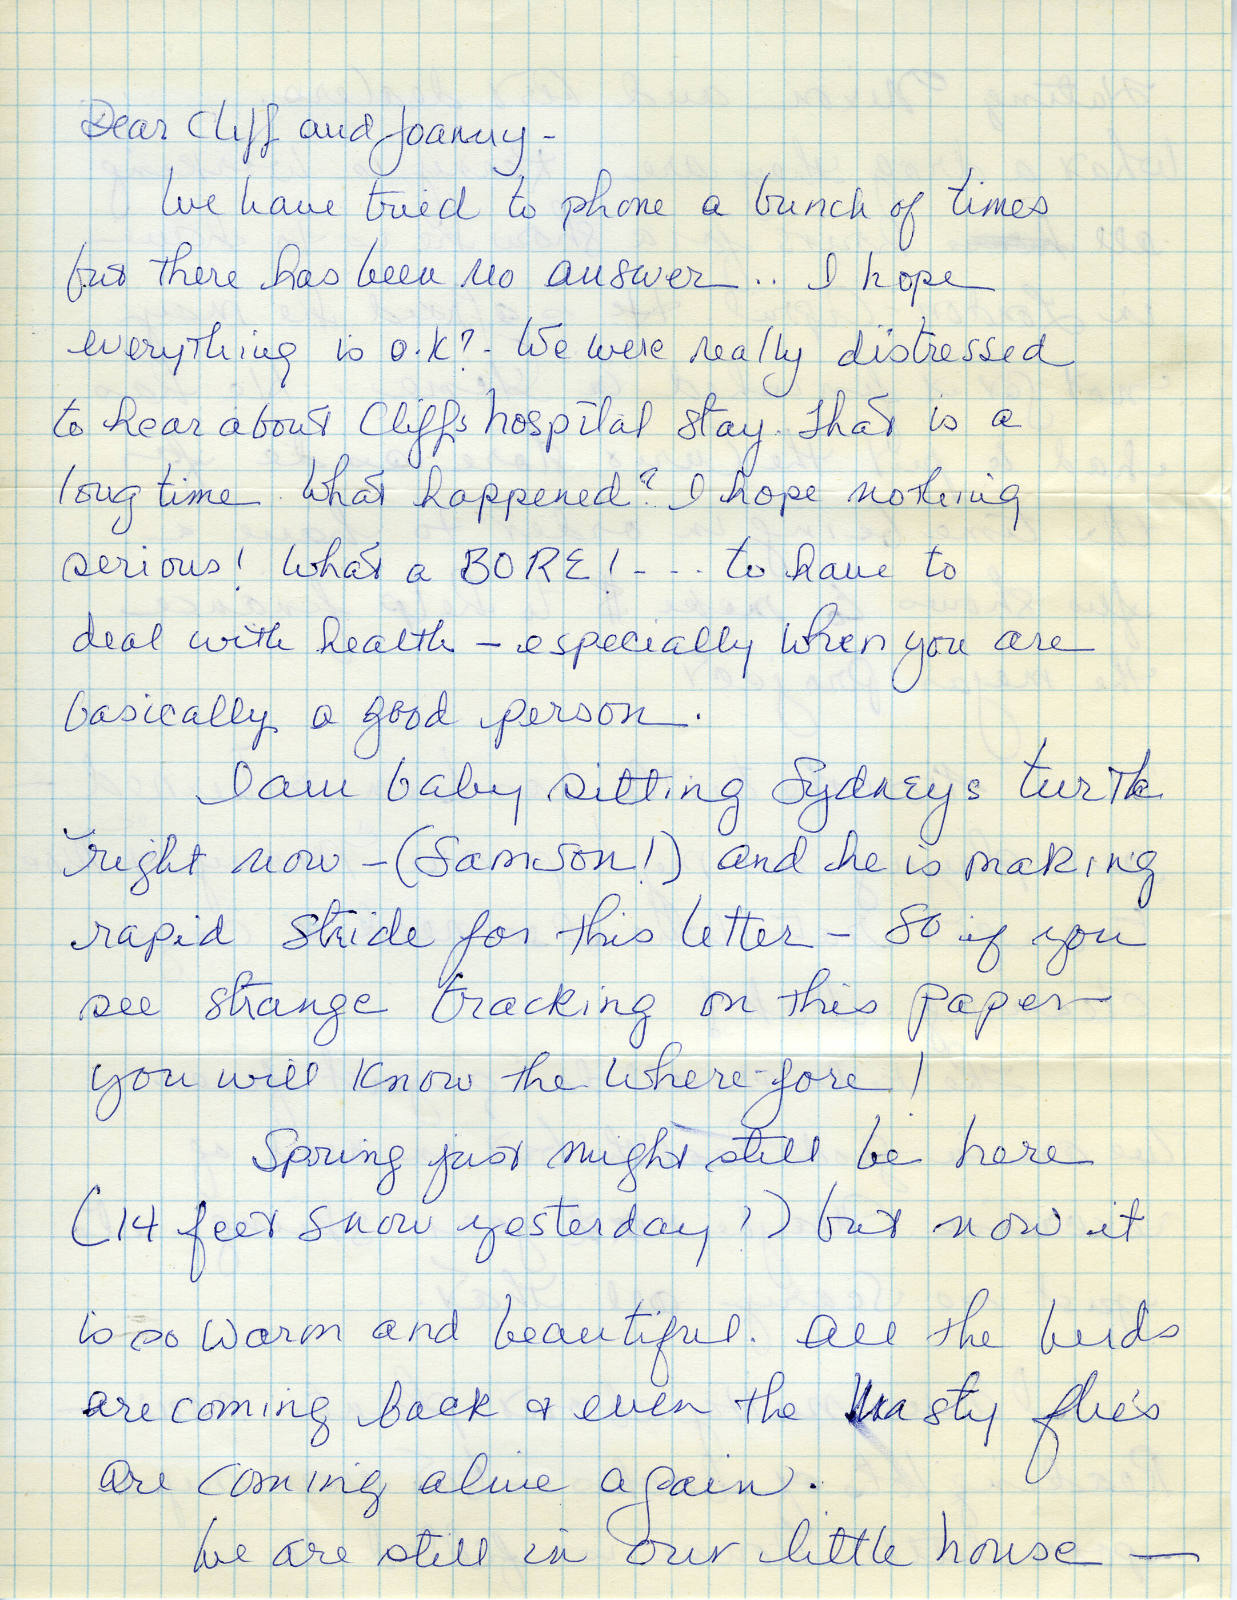 Dear Cliff and Joanny -
We have tried to phone a bunch of times
but there has been no answer .. I hope
everything is o.k? - We were really distressed
to hear about Cliffs hospital stay. That is a
long time. What happened? I hope nothing
serious! What a BORE! - - - to have to
deal with health - especially when you are
basically a good person.
I am baby sitting Sydneys turtle
right now - (Samson!) and he is making
rapid stride for this letter - So if you
see strange tracking on this paper
you will know the where-fore!
Spring just might still be here
(14 feet snow yesterday!) but now it
is so warm and beautiful. All the birds
are coming back & even the nasty flies
are coming alive again.
We are still in our little house —